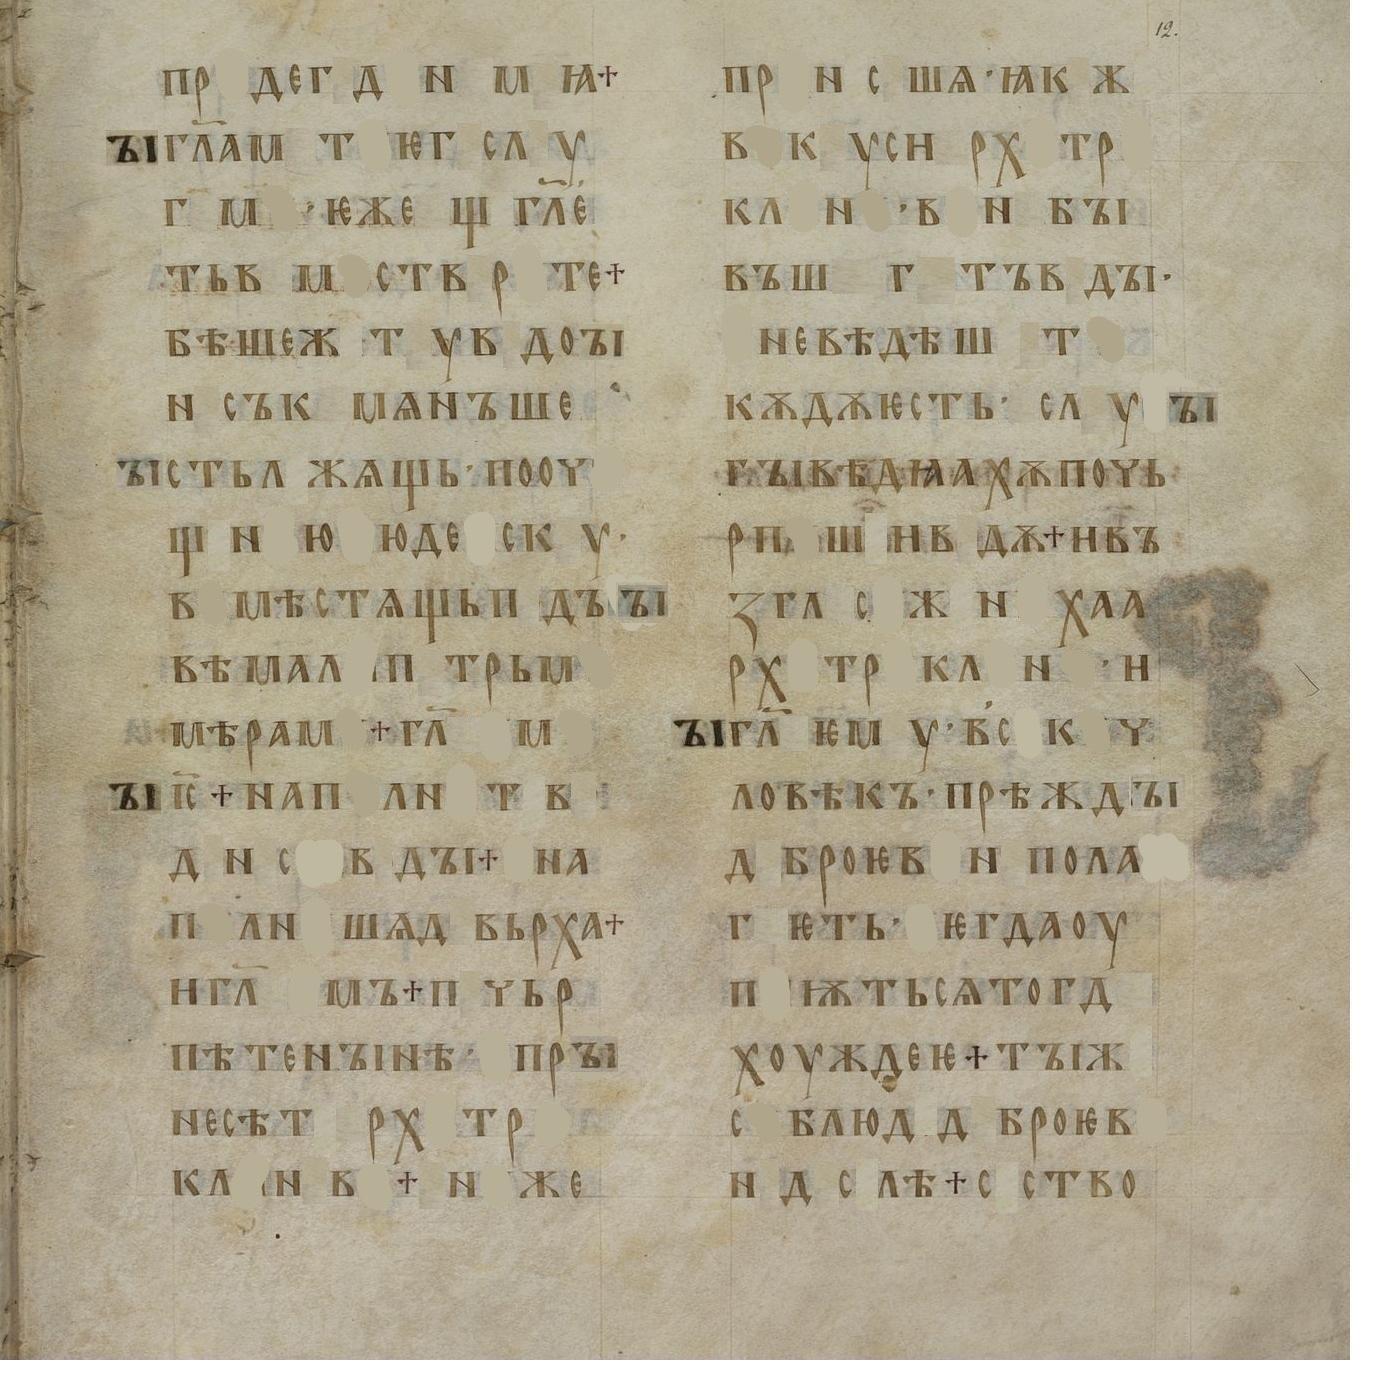 пр дегд н м ꙗ+
ъıгл҃ам т ѥг сл у
г м ·ѥже щ гл҃е
тьв м ств р те+
бѣшеж т ув доъı
н сък мѧнъше
ъıстьл жѧщь·пооу
щ н ю юде ск у·
в мѣстѧщьп дъ ъı
вѣмал п трьм
мѣрам +гл҃ м
ъı іс҃+нап лн т в
д н с в дъı+ на
п лн шѧд вьрха+
нгл҃ мъ+п чьр
пѣтенъıнѣ· пръı
несѣт рх тр
кл н в + н же
пр н с шѧ·ꙗк ж
в к усн рх тр
кл н ·в н бъı
въш г тъв дъı·
невѣдѣш т
кѫдѫѥсть· сл у ъı
гъıвѣдꙗахѫпочь
рп ш нв дѫ+нвъ
ꙁгл с ж н хаа
рх тр кл н ·н
ъıгл҃ ѥм у·в҃с к ч
ловѣкъ·прѣждъı
д броѥв н пола
г ѥть· ѥгдаоу
п ѭтьсѧтогд
хоуждеѥ+тъıж
с блюд д броѥв
н д с лѣ+с ство